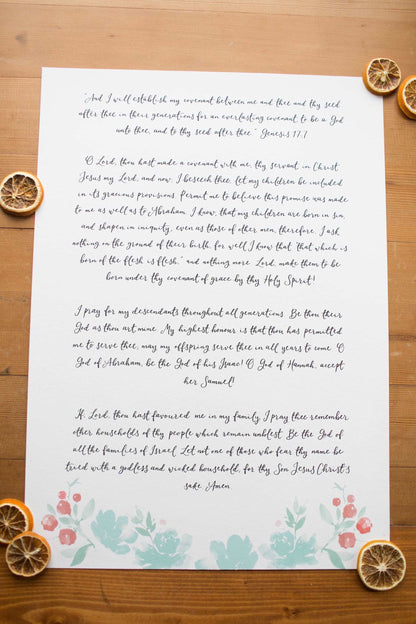 "And I will establish my covenant between me and thee and thy seed
after thee in their generations for an everlasting covenant, to be a God
unto thee, and to thy seed after thee." Genesis 17:7
O Lord, thou hast made a covenant with me, thy servant, in Christ
Jesus my Lord, and now, I beseech thee, let my children be included
in its gracious provisions. Permit me to believe this promise was made
to me as well as to Abraham. I know that my children are born in sin,
and shapen in iniquity, even as those of other men; therefore, I ask
nothing on the ground of their birth, for well I know that "that which is
born of the flesh is flesh," and nothing more. Lord, make them to be
born under thy covenant of grace by thy Holy Spirit!
I pray for my descendants throughout all generations. Be thou their
God as thou art mine. My highest honour is that thou has permitted
me to serve thee; may my offspring serve thee in all years to come. O
God of Abraham, be the God of his Isaac! O God of Hannah, accept
her Samuel!
If, Lord, thou hast favoured me in my family, I pray thee remember
other households of thy people which remain unblest. Be the God of
all the families of Israel. Let not one of those who fear thy name be
tried with a godless and wicked household, for thy Son Jesus Christ's
sake. Amen.